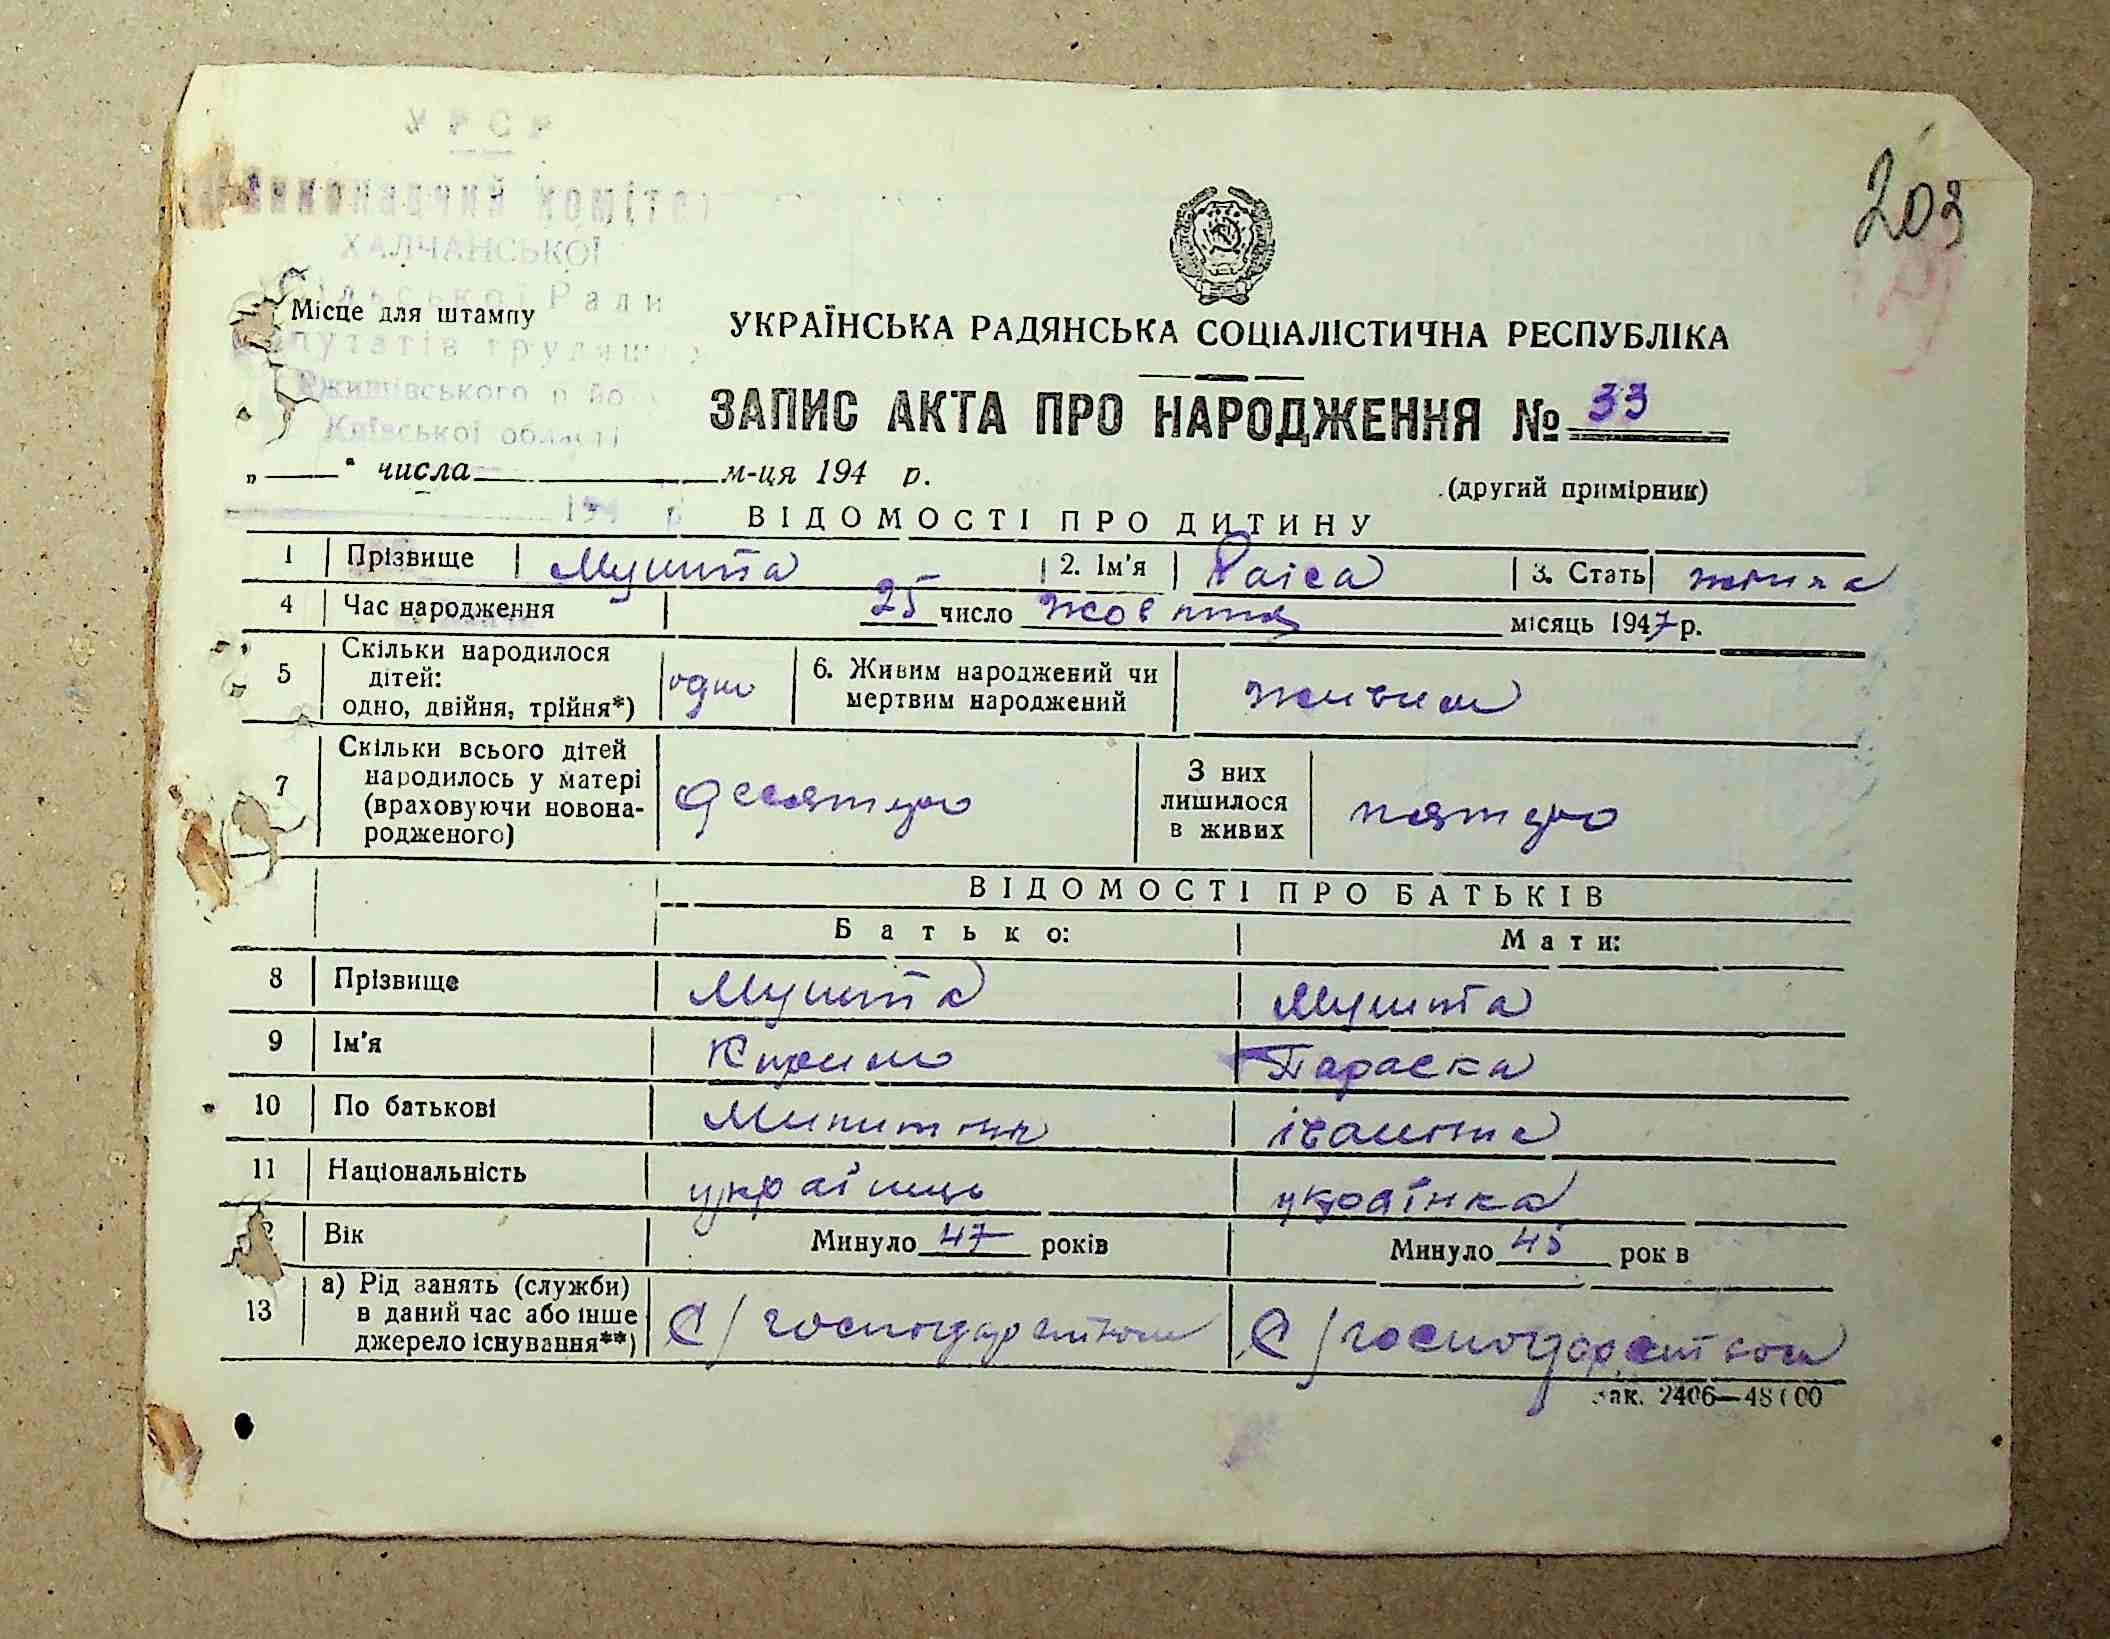 УРСР
Виконавчий коміте
ХАЛЧАНСЬКОЇ
сільської Ради
депутатів трудящ
Ржищівського р йо
Київської області
203
Місце для штампу
УКРАЇНСЬКА РАДЯНСЬКА СОЦІАЛІСТИЧНА РЕСПУБЛІКА
ЗАПИС АКТА ПРО НАРОДЖЕННЯ № 33
„ “ числа м-ця 194 р.
(другий примірник)
194 р
ВІДОМОСТІ ПРО ДИТИНУ
1 Прізвище Мушта 2. Ім'я Раїса 3. Стать жіноча
4 Час народження 25 число жовтня місяць 1947 р.
5 Скільки народилося дітей: одно, двійня, трійня*) одно 6. Живим народжений чи мертвим народжений живим
7 Скільки всього дітей народилось у матері (враховуючи новона-родженого) десятеро З них лишилося в живих пятеро
ВІДОМОСТІ ПРО БАТЬКІВ
Батько: Мати:
8 Прізвище Мушта Мушта
9 Ім'я Кирило Параска
10 По батькові Микитович івановна
11 Національність українець українка
Вік Минуло 47 років Минуло 45 рок в
13 а) Рід занять (служби) в даний час або інше джерело існування**) С/господарством С/господарством
Зак. 2406—48000